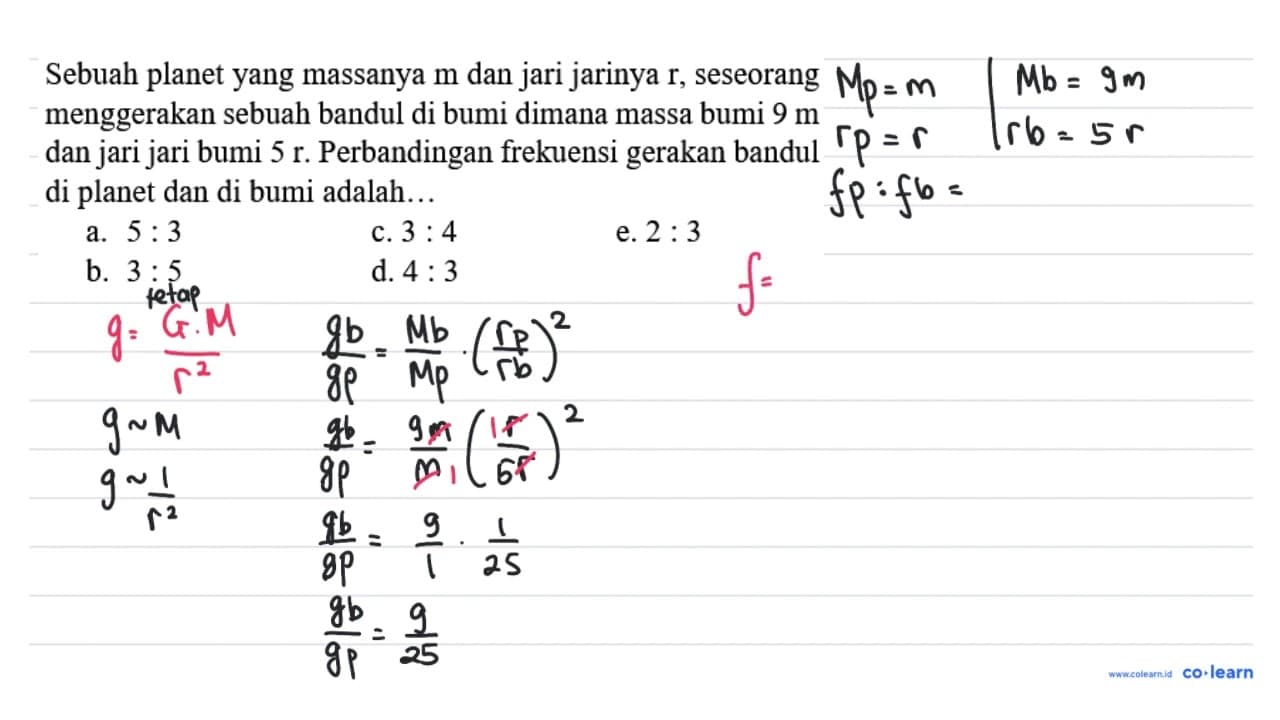 Sebuah planet yang massanya m dan jari jarinya r, seseorang
menggerakan sebuah bandul di bumi dimana massa bumi 9 m
dan jari jari bumi 5 r. Perbandingan frekuensi gerakan bandul
di planet dan di bumi adalah...
a. 5 : 3 c. 3 : 4 e. 2 : 3
b. 3 : 5 d. 4 : 3
Mp = m | Mb = 9m
rp = r | rb = 5r
fp : fb =
f =
tetap
g = G.M / r²
g ~ M
g ~ 1 / r²
gb / gp = Mb / Mp . (rp / rb)²
gb / gp = 9m / m 1 (1 r / 5r)²
gb / gp = 9 / 1 . 1 / 25
gb / gp = 9 / 25
www.colearn.id co·learn